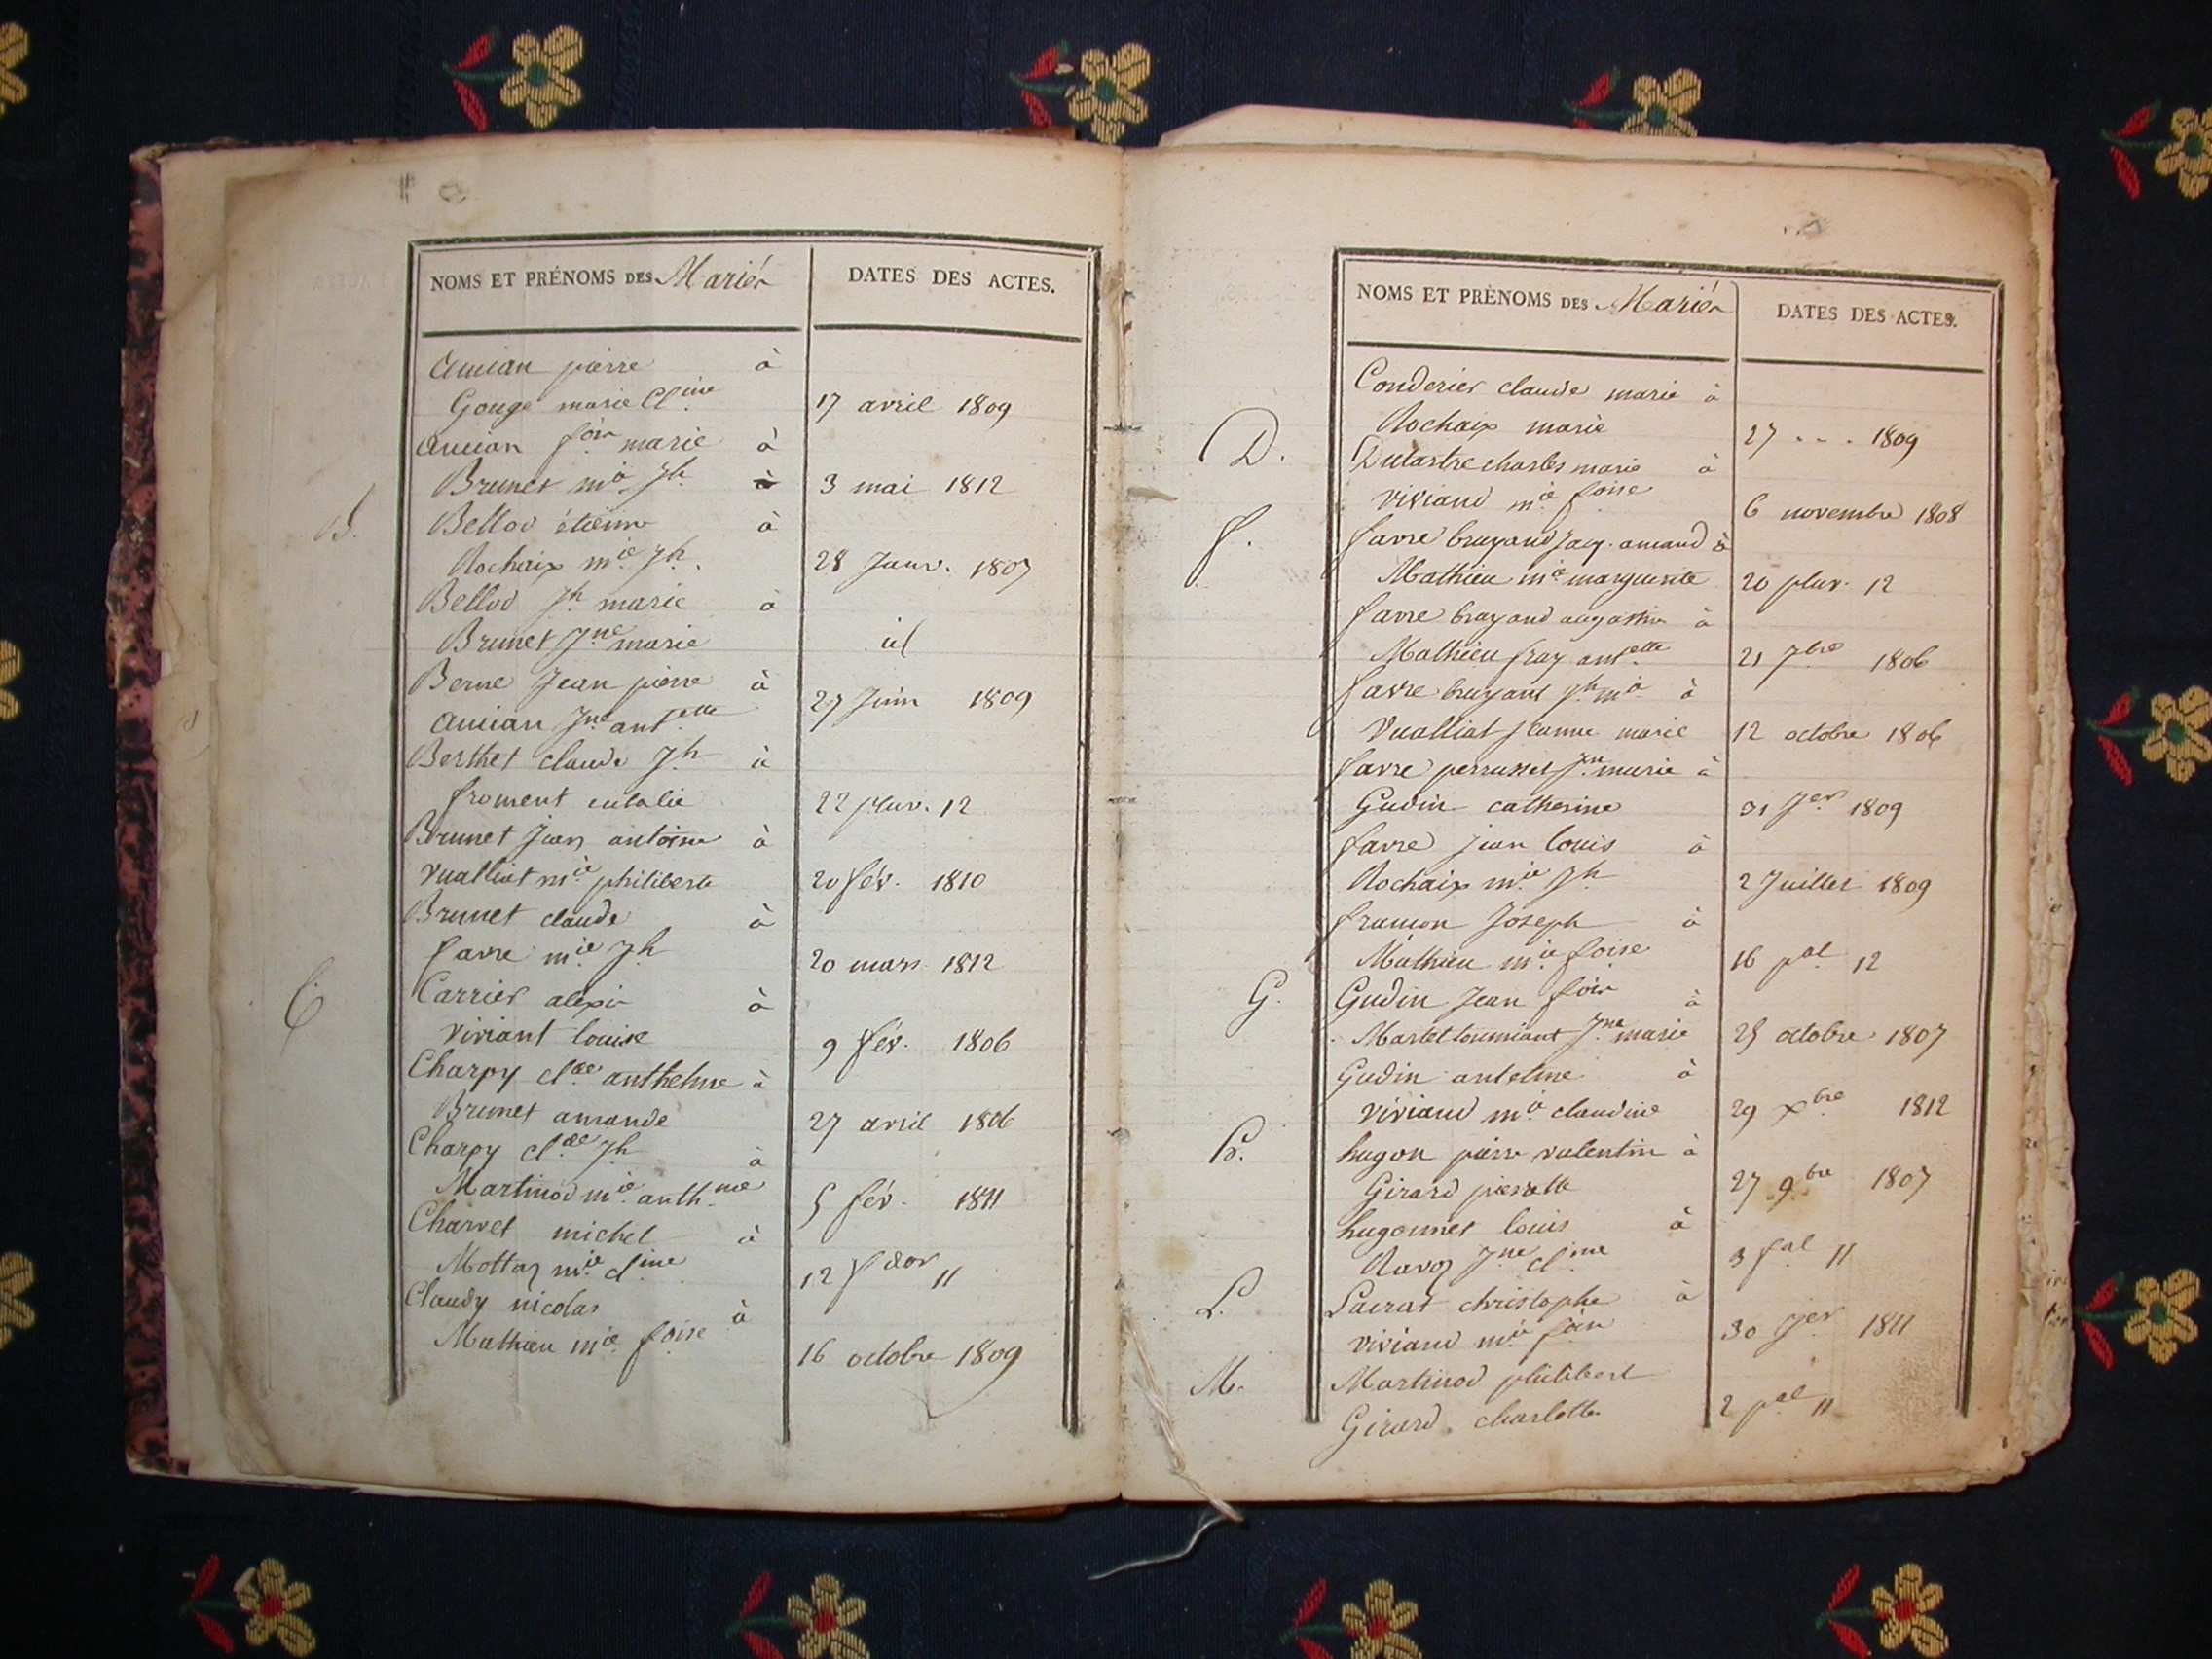 NOMS ET PRÉNOMS DES Mariés
DATES DES ACTES.
Ancian pierre à
Gouge marie Cl.ine 17 avril 1809
Ancian f.ois marie à
Brunet m.ie Jh. à 3 mai 1812
B. Bellod étienne à
Rochaix m.ie Jh. 28 Janv. 1807
Bellod Jh. marie à
Brunet J.ne marie id
Berne Jean pierre à
Ancian J.ne ant.ette 27 Juin 1809
Berthet claude Jh. à
froment eulalie 22 pluv. 12
Brunet Jean antoine à
Vualliat m.ie philiberte 20 fév. 1810
Brunet claude à
favre m.ie Jh 20 mars 1812
C. Carrier alexis à
Viviant louise 9 fév. 1806
Charpy cl.de anthelme à
Brunet amande 27 avril 1806
Charpy cl.de Jh à
Martinod m.ie anth.me 5 fév. 1811
Charvet michel à
Mottaz m.ie cl.ine 12 f.dor 11
Claudy nicolas à
Mathieu m.ie f.oise 16 octobre 1809
NOMS ET PRÉNOMS DES Mariés
DATES DES ACTES.
Conderier claude marie à
Rochaix marie 27 . . . 1809
D. Dutastre charles marie à
Viviand m.ie f.oise 6 novembre 1808
f. favre bruyand Jacq. amand à
Mathieu m.ie marguerite 20 pluv. 12
favre bruyand augustin à
Mathieu fray ant.ette 21 7bre 1806
favre bruyant Jh. m.ie à
Vualliat Jeanne marie 12 octobre 1806
favre perrusset J.n marie à
Gudin catherine 31 Jer 1809
favre jean louis à
Rochaix m.ie Jh 2 Juillet 1809
framon Joseph à
Mathieu m.ie f.oise 16 p.al 12
G. Gudin Jean f.ois à
Martel tourniant J.ne marie 25 octobre 1807
Gudin antelme à
Viviand m.ie claudine 29 Xbre 1812
h. hugon pierre valentin à
Girard pierrette 27 9bre 1807
hugonnet louis à
Ravoz J.ne cl.ine 3 f.al 11
L. Lacrat christophe à
Viviand m.ie 30 Jer 1811
M. Martinod philibert
Girard charlotte 2 p.al 11